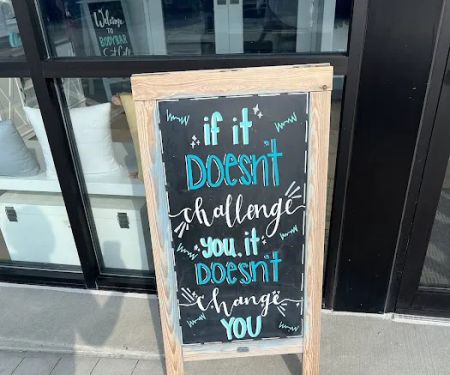 Welcome
to
BODYBAR
if it
Doesn't
challenge
you, it
Doesn't
Change
YOU